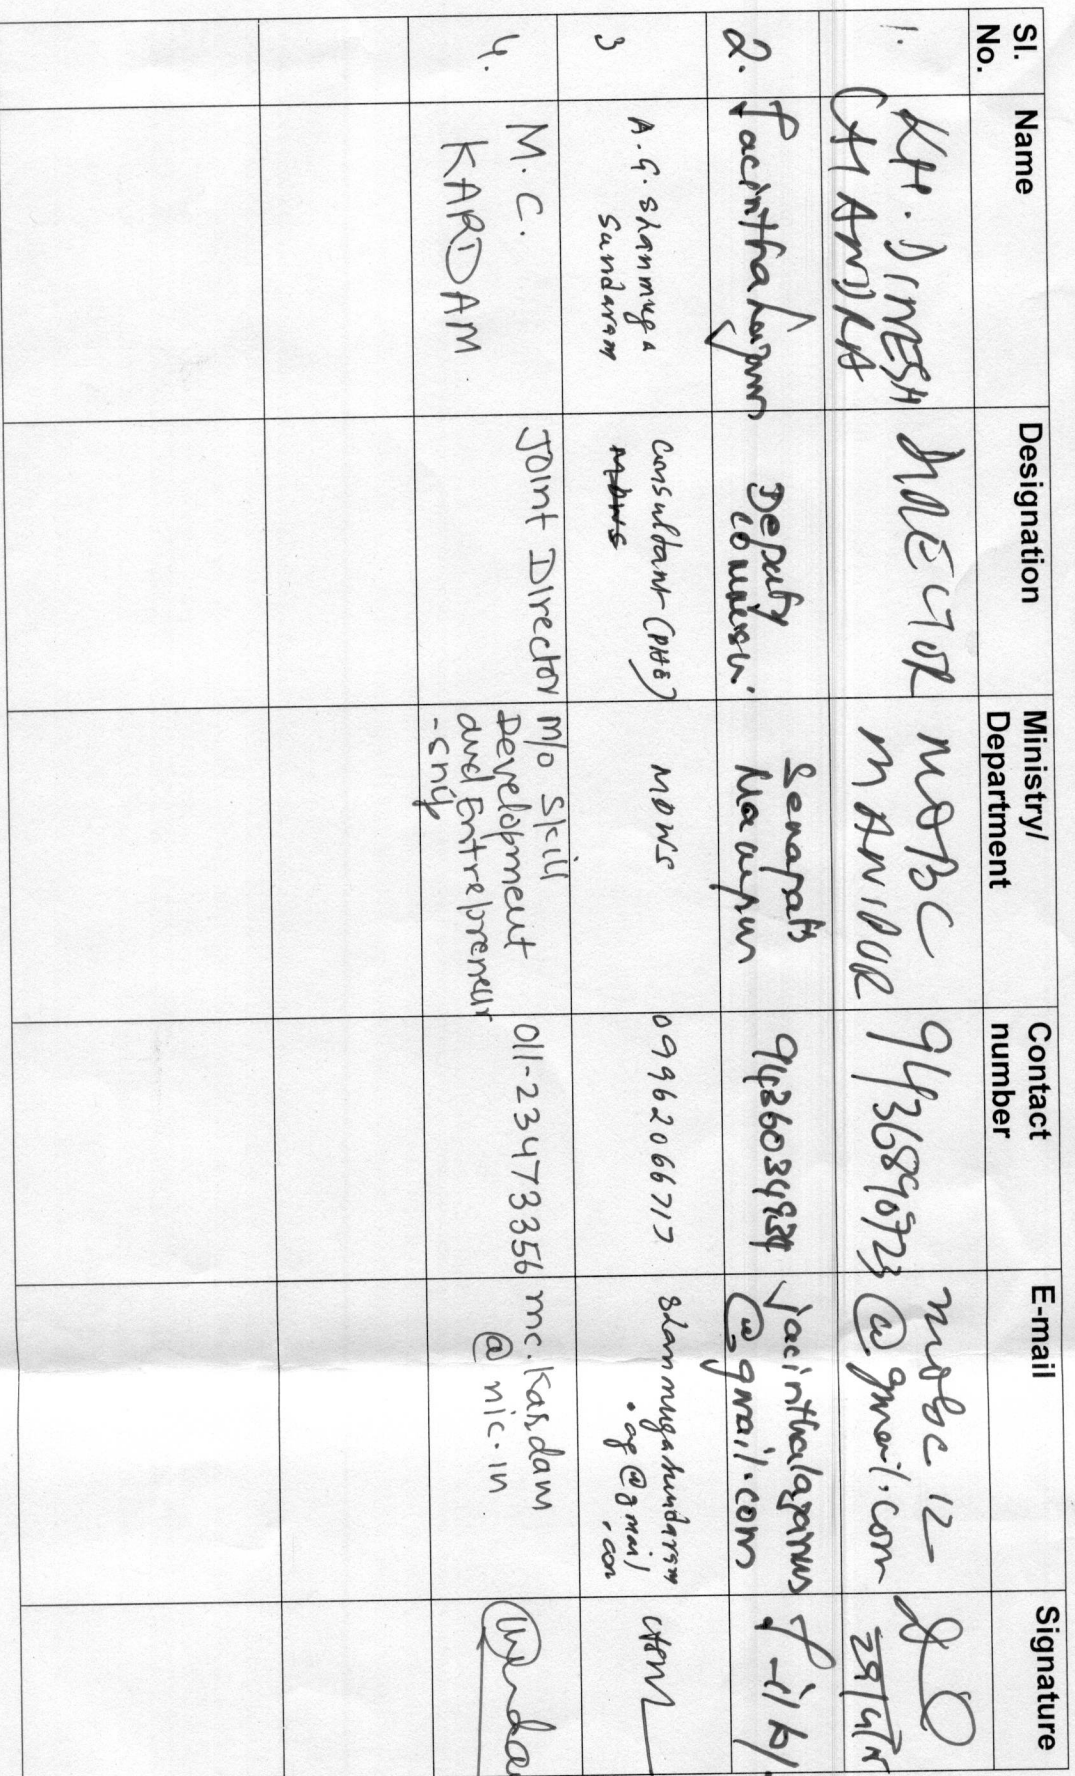 Sl. No. Name Designation Ministry/ Department Contact number E-mail Signature
1. KH. DINESH CHANDRA DIRECTOR MOBC MANIPUR 9436890723 mobc12@gmail.com
2. Deputy Senapati Manipur @gmail.com
3 A.G. Shanmuga Sundaram Consultant (PHE) MDWS MDWS 09962066717 shanmugasundaram.ag@gmail.com
4. M.C. KARDAM Joint Director M/o Skill Development and Entrepreneur-ship 011-23473356 mc.kardam@nic.in